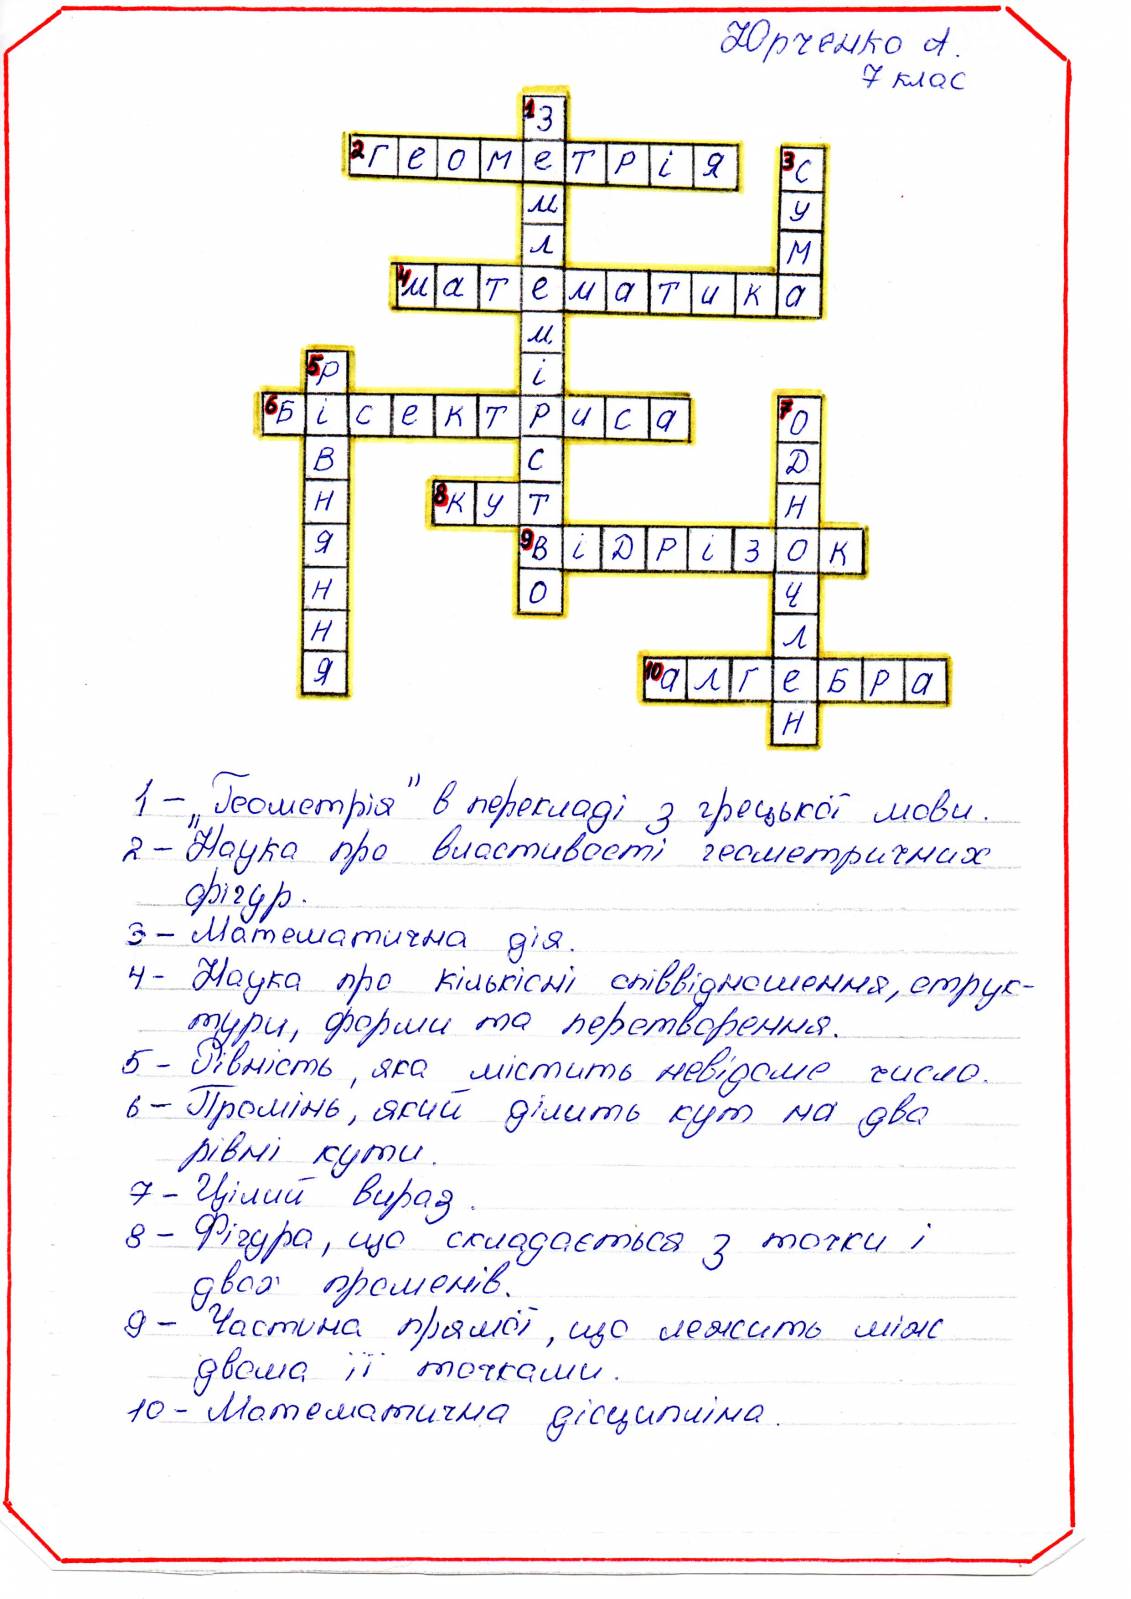 Юрченко А.
7 клас
1З
2ГЕОМЕТРІЯ
3С
У
М
Л
М
4МАТЕМАТИКА
М
5Р
І
6БІСЕКТРИСА
7О
В
С
Д
Н
8КУТ
Н
Я
9ВІДРІЗОК
Н
О
Ч
Н
Л
Я
10АЛГЕБРА
Н
1 – „Геометрія" в перекладі з грецької мови.
2 – Наука про властивості геометричних
фігур.
3 – Математична дія.
4 - Наука про кількісні співвідношення, струк-
тури, форми та перетворення.
5 - Рівність, яка містить невідоме число.
6 – Промінь, який ділить кут на два
рівні кути.
7 – Цілий вираз.
8 – Фігура, що складається з точки і
двох променів.
9 – Частина прямої, що лежить між
двома її точками.
10 - Математична дісципліна.